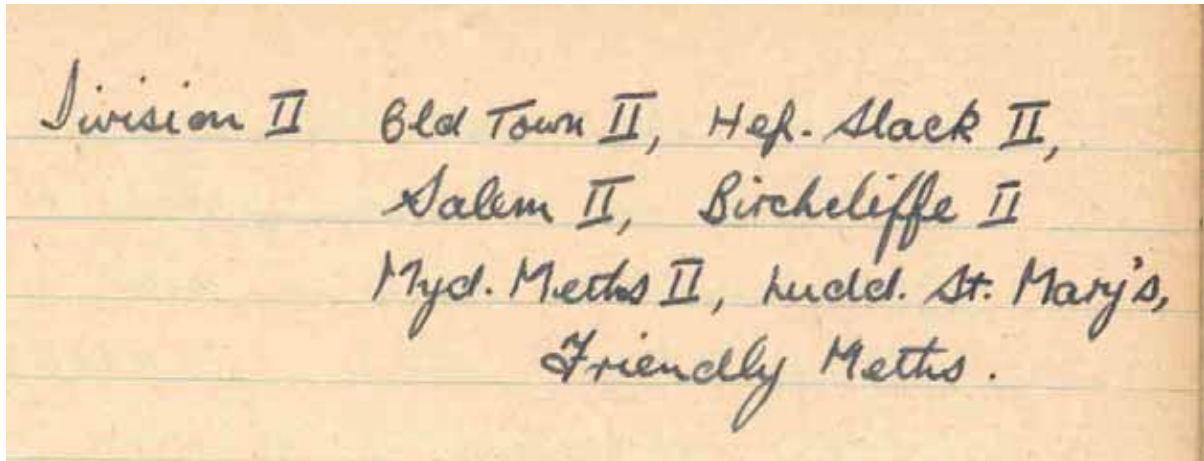 Division II Old Town II, Hep. Slack II,
Salem II, Birchcliffe II
Myd. Meths II, Ludd. St. Mary's,
Friendly Meths.